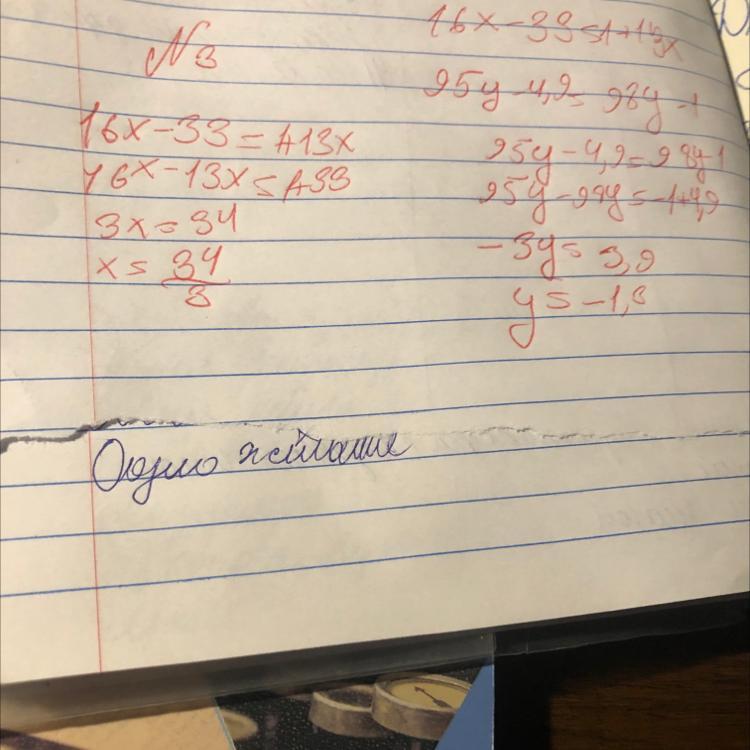 N3
16x-33=1+13x
16x-13x=1+33
3x=34
x= 34
3
16x-33=1+13x
25y-4,9=28y-1
25y-4,9=28y-1
25y-28y=-1+4,9
-3y=3,9
y=-1,3
Одно желание